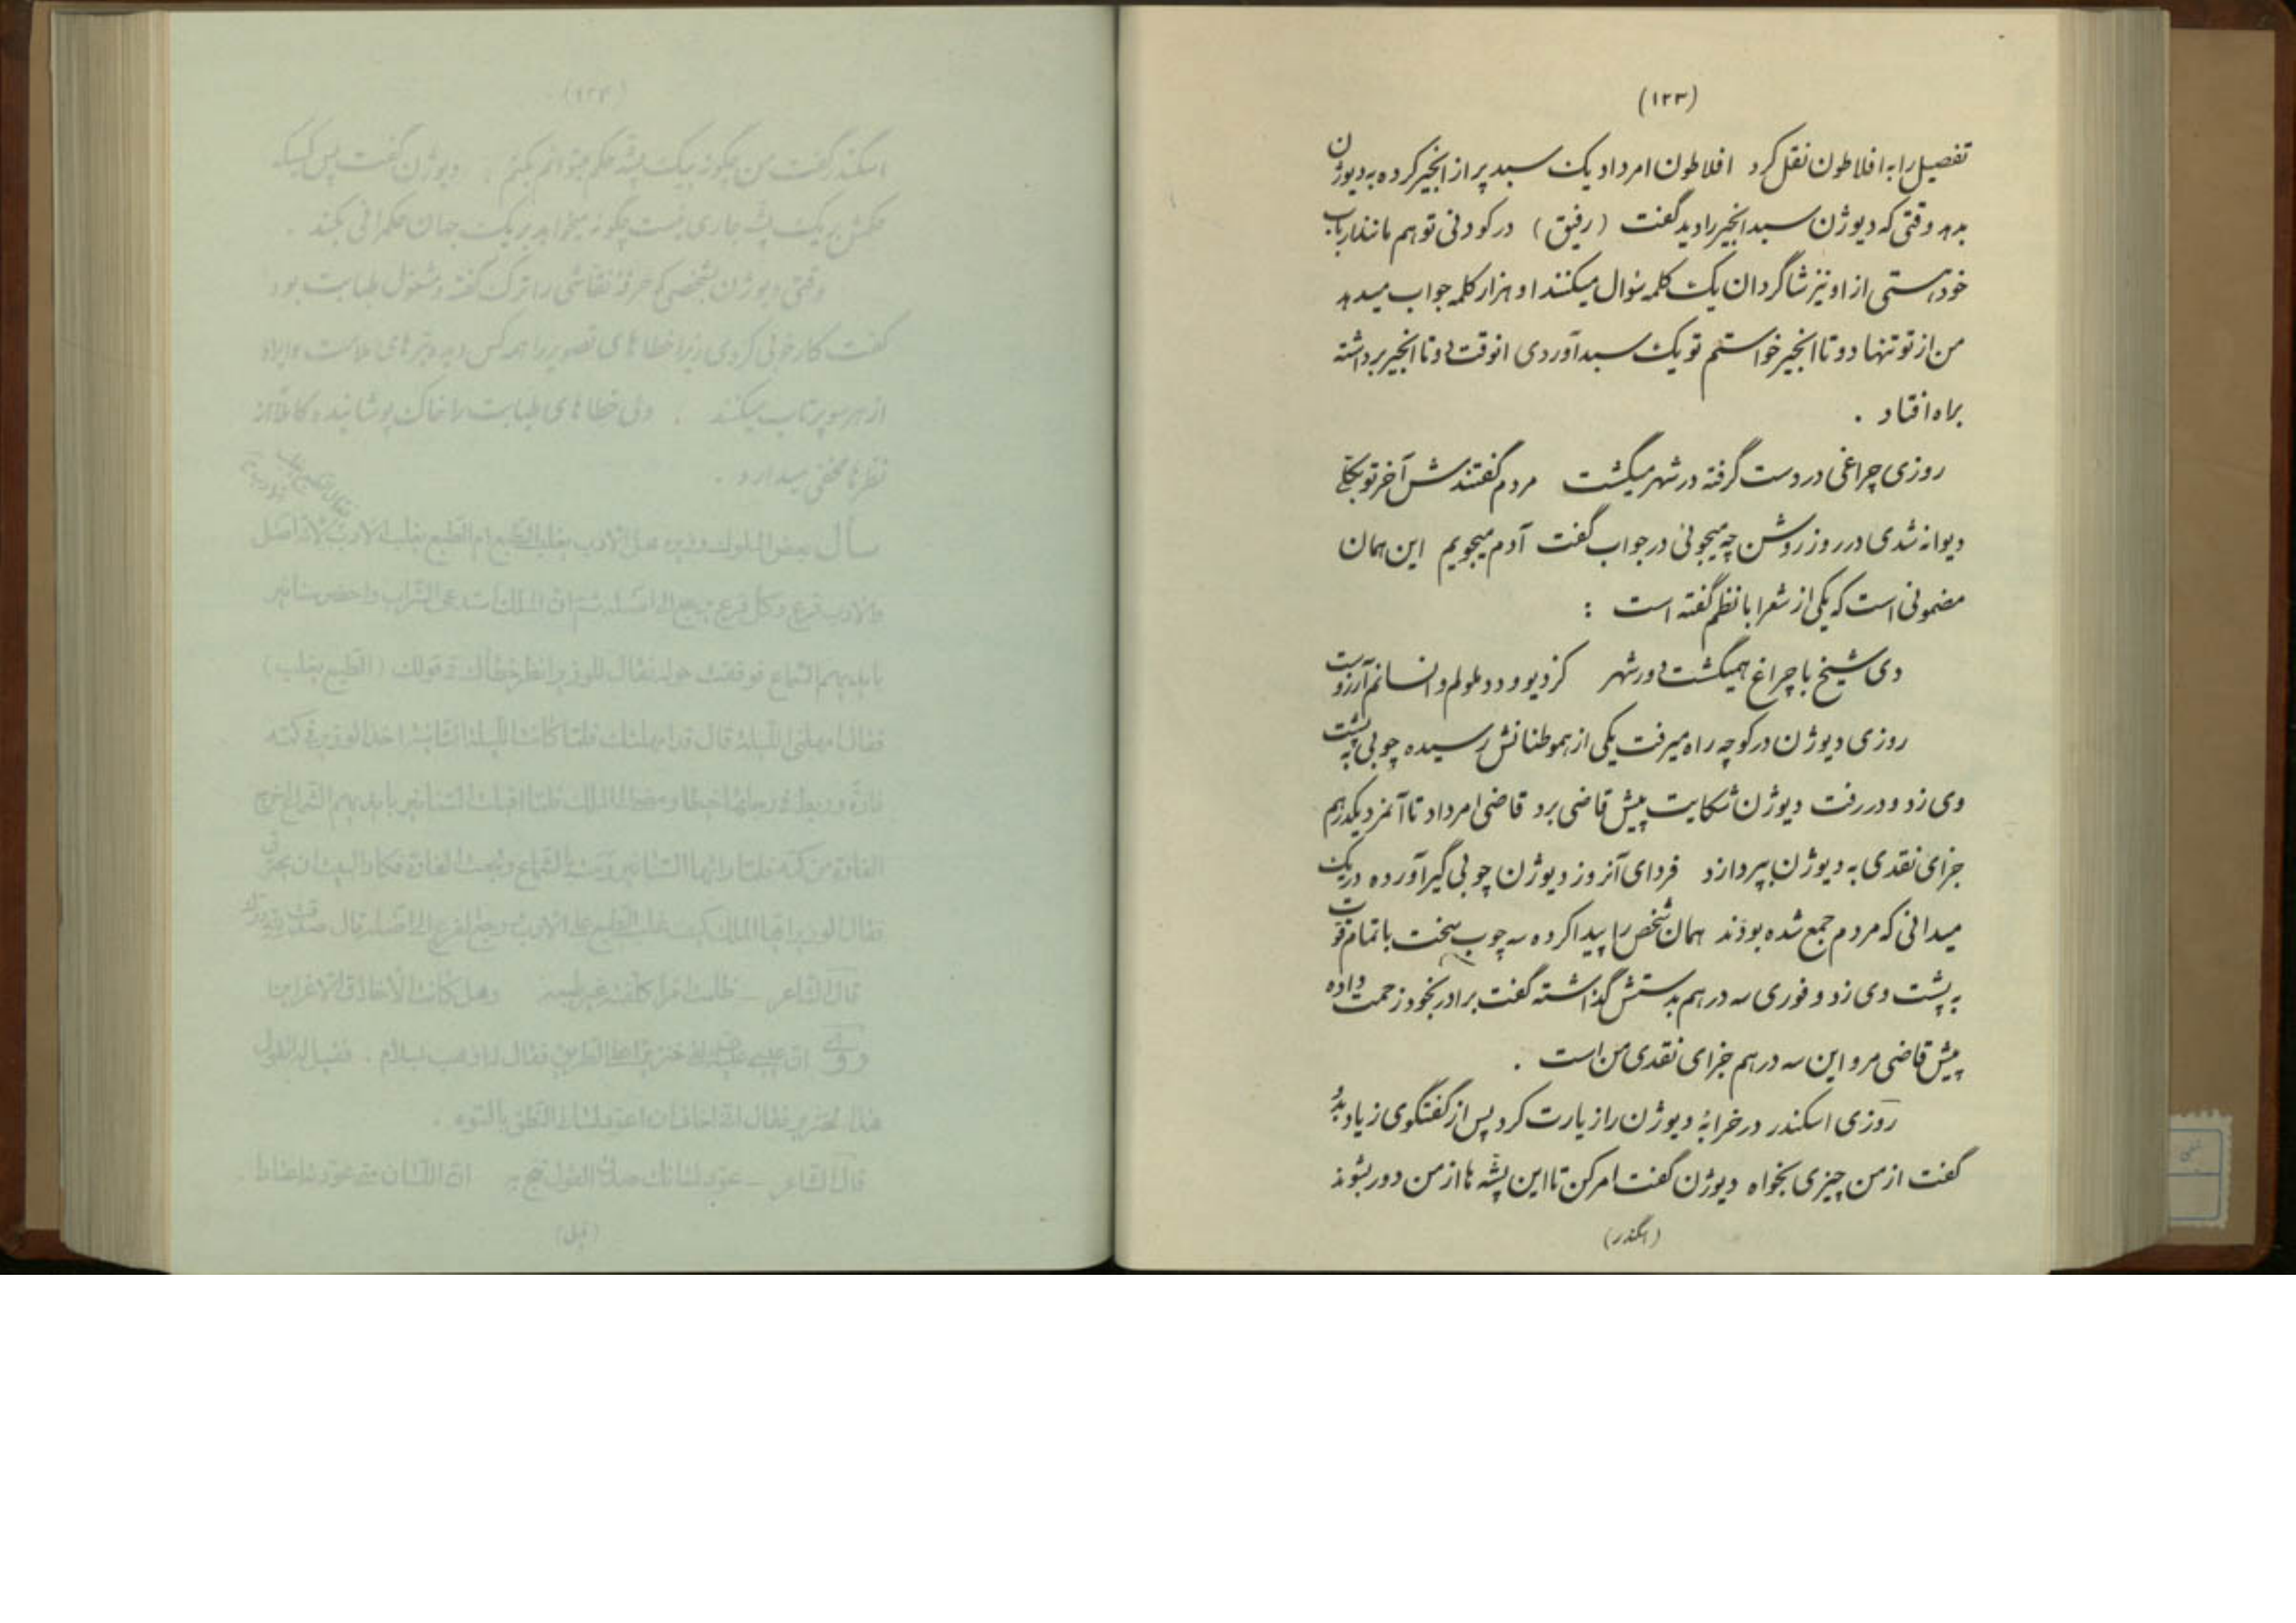 (۱۲۳)
تفصیل را به افلاطون نقل کرد افلاطون امر داد یک سبد پر از انجیر کرده به دیوژن
بدهد وقتی که دیوژن سبد انجیر را دید گفت (رفیق) در کودنی تو هم مانند ارباب
خود هستی از او نیز شاگردان یک کلمه سئوال میکنند او هزار کلمه جواب میدهد
من از تو تنها دو تا انجیر خواستم تو یک سبد آوردی انوقت دو تا انجیر برداشته
براه افتاد .
روزی چراغی در دست گرفته در شهر میگشت مردم گفتندش آخر تو بکلی
دیوانه شدی در روز روشن چه میجوئی در جواب گفت آدم میجویم این همان
مضمونی است که یکی از شعرا با نظم گفته است :
دی شیخ با چراغ همیگشت دور شهر کز دیو و دد ملولم و انسانم آرزوست
روزی دیوژن در کوچه راه میرفت یکی از هموطنانش رسیده چوبی به پشت
وی زد و در رفت دیوژن شکایت پیش قاضی برد قاضی امر داد تا آنمرد یکدرهم
جزای نقدی به دیوژن بپردازد فردای آنروز دیوژن چوبی گیر آورده در یک
میدانی که مردم جمع شده بودند همان شخص را پیدا کرده سه چوب سخت با تمام قوت
به پشت وی زد و فوری سه درهم بدستش گذاشته گفت برادر بخود زحمت داده
پیش قاضی مرو این سه درهم جزای نقدی من است .
روزی اسکندر در خرابهٔ دیوژن را زیارت کرد پس از گفتگوی زیاد بدو
گفت از من چیزی بخواه دیوژن گفت امر کن تا این پشّه ها از من دور بشوند
(اسکندر)
(۱۲۴)
اسکندر گفت من چگونه بیک پشه حکم میتوانم بکنم ; دیوژن گفت پس کسیکه
حکمش بر یک پشّه جاری نیست چگونه میخواهد بر یک جهان حکمرانی بکند .
وقتی دیوژن بشخصی که حرفهٔ نقاشی را ترک گفته و مشغول طبابت بود
گفت کار خوبی کردی زیرا خطا های تصویر را هر کس دیده تیر های ملامت و ایراد
از هر سو پرتاب میکنند . ولی خطا های طبابت را خاک پوشانیده و کاملاً از
نظر ها مخفی میدارد .
سأل بعض الملوک وزیره هل الادب یغلب الطّبع ام الطّبع یغلب الادب لانّه اصل
والادب فرع و کلّ فرع یرجع الی اصله ثم انّ الملک استدعی الشّراب و احضر سنانیر
بایدیهم الشّماع فوقفت حوله فقال للوزیر انظر خطأک فی قولک (الطّبع یغلب)
فقال امهلنی اللّیلة قال قد امهلتک فلمّا کانت اللّیلة الثّانیة اخذ الوزیر فی کمّه
فارة و ربط فی رجلها خیطا و مضی الی الملک فلمّا اقبلت السّنانیر بایدیهم الشّماع اخرج
الفارة من کمّه فلمّا راتها السّنانیر رمت بالشّماع و تبعت الفارة فکاد البیت ان یحترق
فقال الوزیر ایّها الملک کیف غلب الطّبع علی الادب و رجع الفرع الی اصله قال صدقت
قال الشّاعر –
هذا لخنزیر فقال انّی اخاف ان اعوّد لسانی النّطق بالسّوء .
قال الشّاعر – عوّد لسانک